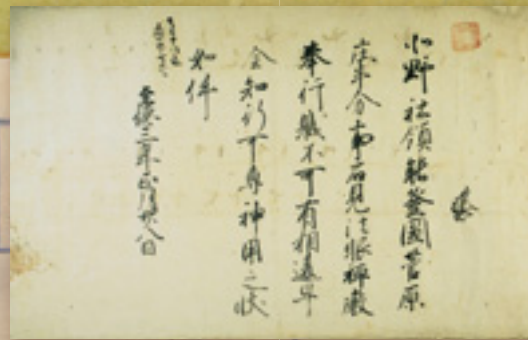 北野社領能登國菅原
庄半分事石見法眼禅厳
奉行職不可有相違早
全知行可専神用之状
如件
三年正月廿八日